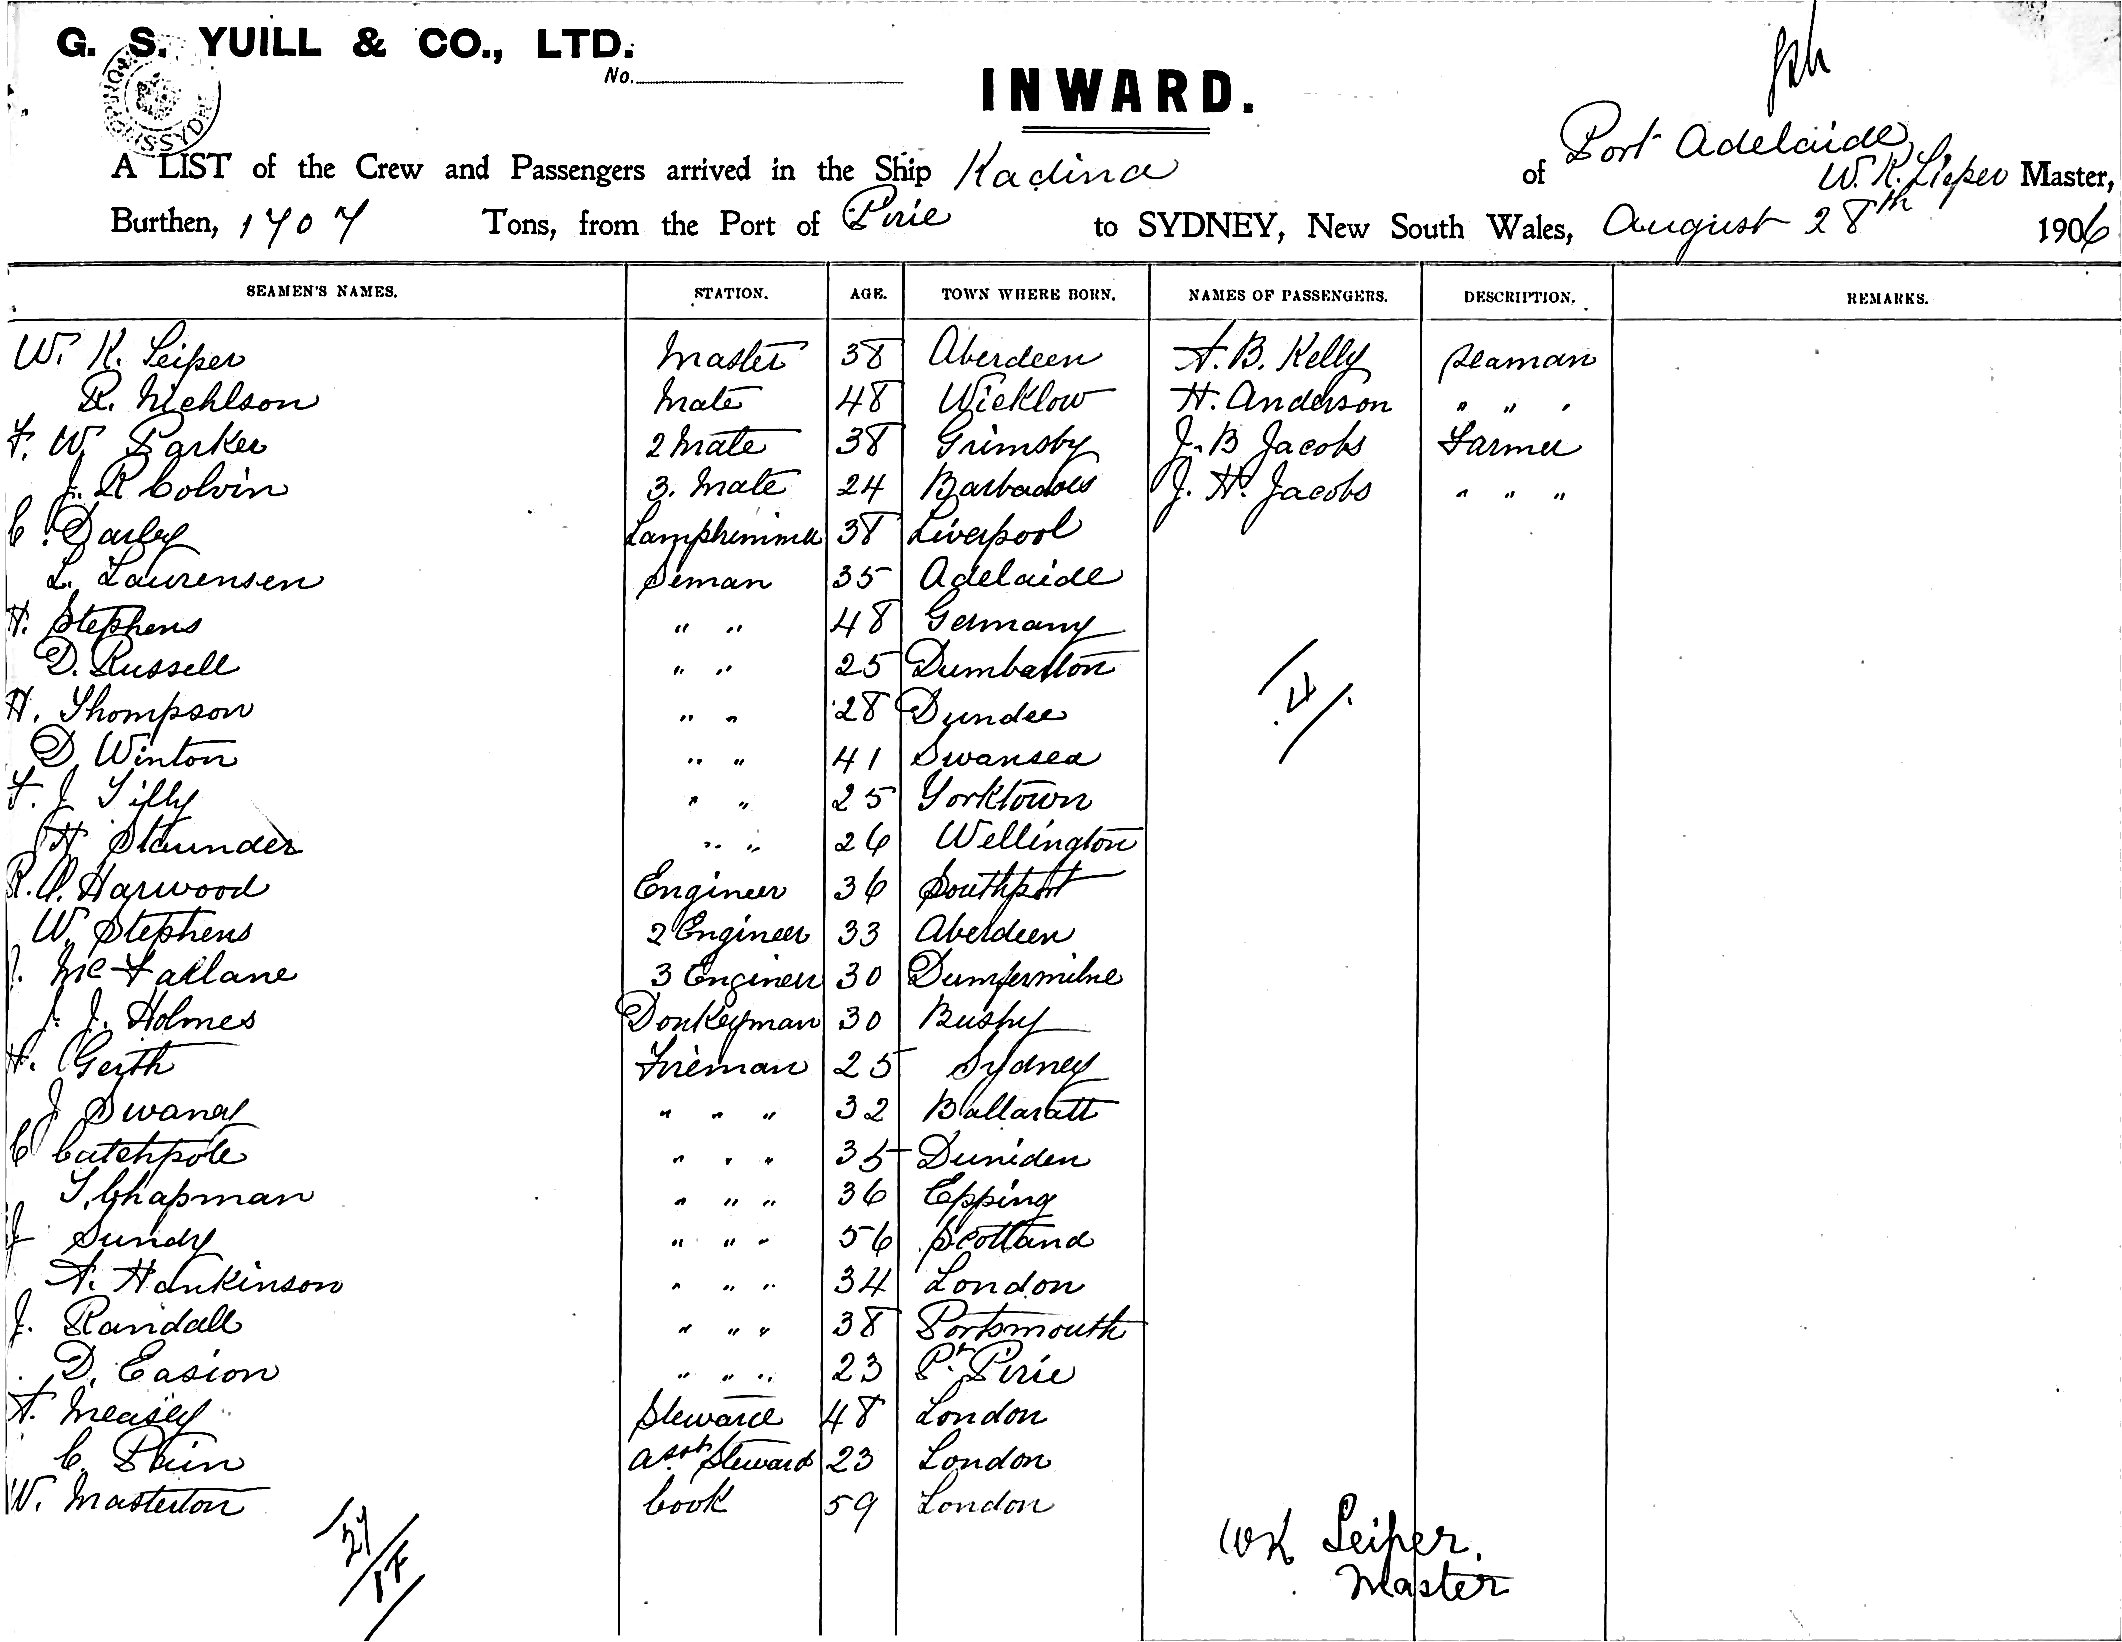 G. S. YUILL & CO., LTD.
No.
INWARD.
Port Adelaide
A LIST of the Crew and Passengers arrived in the Ship Kadina of W. K. Leiper Master,
Burthen, 1707 Tons, from the Port of Pirie to SYDNEY, New South Wales, August 28th 1906
SEAMEN'S NAMES. STATION. AGE. TOWN WHERE BORN. NAMES OF PASSENGERS. DESCRIPTION. REMARKS.
W. K. Leiper Master 38 Aberdeen A. B. Kelly Seaman
R. Nichlson Mate 48 Wicklow H. Anderson " " "
F. W. Parker 2 Mate 38 Grimsby J. B Jacobs Farmer
J. R Colvin 3. Mate 24 Barbadoes J. H. Jacobs " " "
C. Darley Lamptrimmer 38 Liverpool
L. Laurensen Seman 35 Adelaide
H. Stephens " " 48 Germany
D. Russell " " 25 Dumbarton
H. Thompson " " 28 Dundee
D. Winton " " 41 Swansea
F. J Tilly " " 25 Yorktown
H Staunder " " 26 Wellington
R. Harwood Engineer 36 Southport
W. Stephens 2 Engineer 33 Aberdeen
Mc Farlane 3 Engineer 30 Dumfermilne
J. J. Holmes Donkeyman 30 Busby
H. Gerth Fireman 25 Sydney
J Swaney " " " 32 Ballaratt
C Catchpole " " " 35 Duniden
T. Chapman " " " 36 Epping
J Sundy " " " 56 Scotland
A. Hankinson " " " 34 London
J. Randall " " " 38 Portsmouth
D. Easion " " " 23 Pt. Pirie
A. Measey Steward 48 London
C. Asst Steward 23 London
W. Masterton Cook 59 London
4
27
WK Leiper.
Master